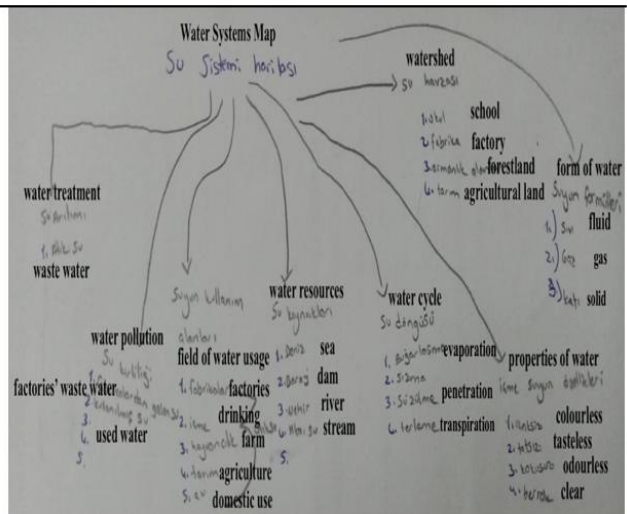 Water Systems Map
Su Sistemi haritası
watershed
su havzası
1. okul school
2. fabrika factory
3. ormanlık alan forestland
4. tarım agricultural land
form of water
Suyun formülleri
1.) Sıvı fluid
2.) Gaz gas
3) katı solid
water treatment
Su arıtımı
1. Atık Su
waste water
water pollution
Su kirliliği
1.
factories' waste water
2. kullanılmış su
3.
4. used water
5.
Suyun kullanım
alanları
field of water usage
1. fabrikalar factories
2. içme drinking
3. hayvancılık farm
4. tarım agriculture
5. ev domestic use
water resources
Su kaynakları
1. Deniz sea
2. Baraj dam
3. nehir river
4. stream
5.
water cycle
Su döngüsü
1. Buğarlaşma evaporation
2. Sızma
3. Süzülme penetration
4. terleme transpiration
properties of water
içme suyun özellikleri
1. renksiz colourless
2. tatsız tasteless
3. kokusuz odourless
4. berrak clear